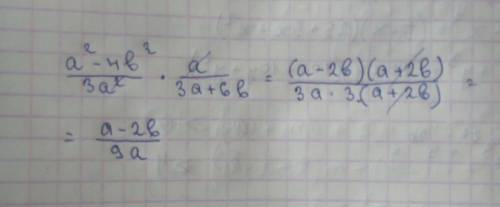 (a² - 4b²)/(3a²) · a/(3a + 6b) = ((a - 2b)(a + 2b))/(3a · 3(a + 2b)) =
= (a - 2b)/(9a)